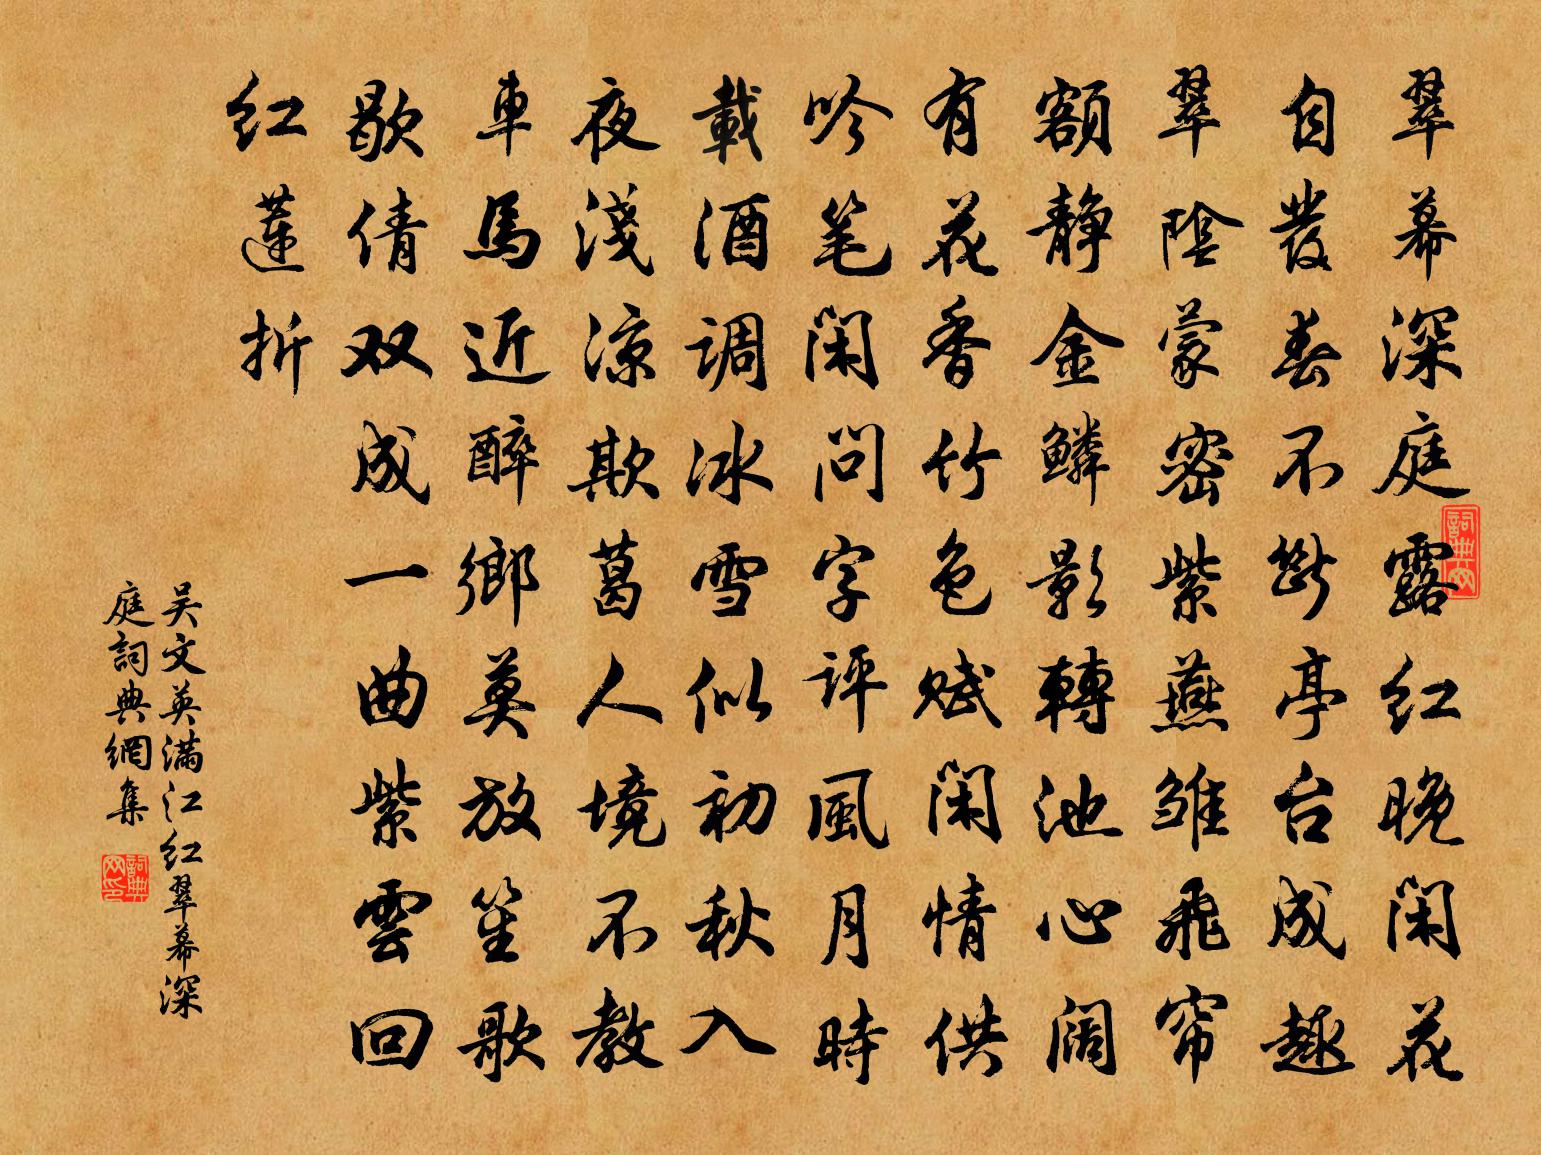 翠幕深庭露红晚闲花
自發春不断亭台成趣
翠陰蒙密紫燕雏飛帘
額静金鳞影轉池心阔
有花香竹色赋闲情供
吟笔闲問字評風月時
載酒調冰雪似初秋入
夜淺涼欺葛人境不教
車馬近醉鄉莫放笙歌
歇倩双成一曲紫雲回
红蓮折
吴文英滿江红翠幕深
庭詞典網集
詞典网
詞典网印